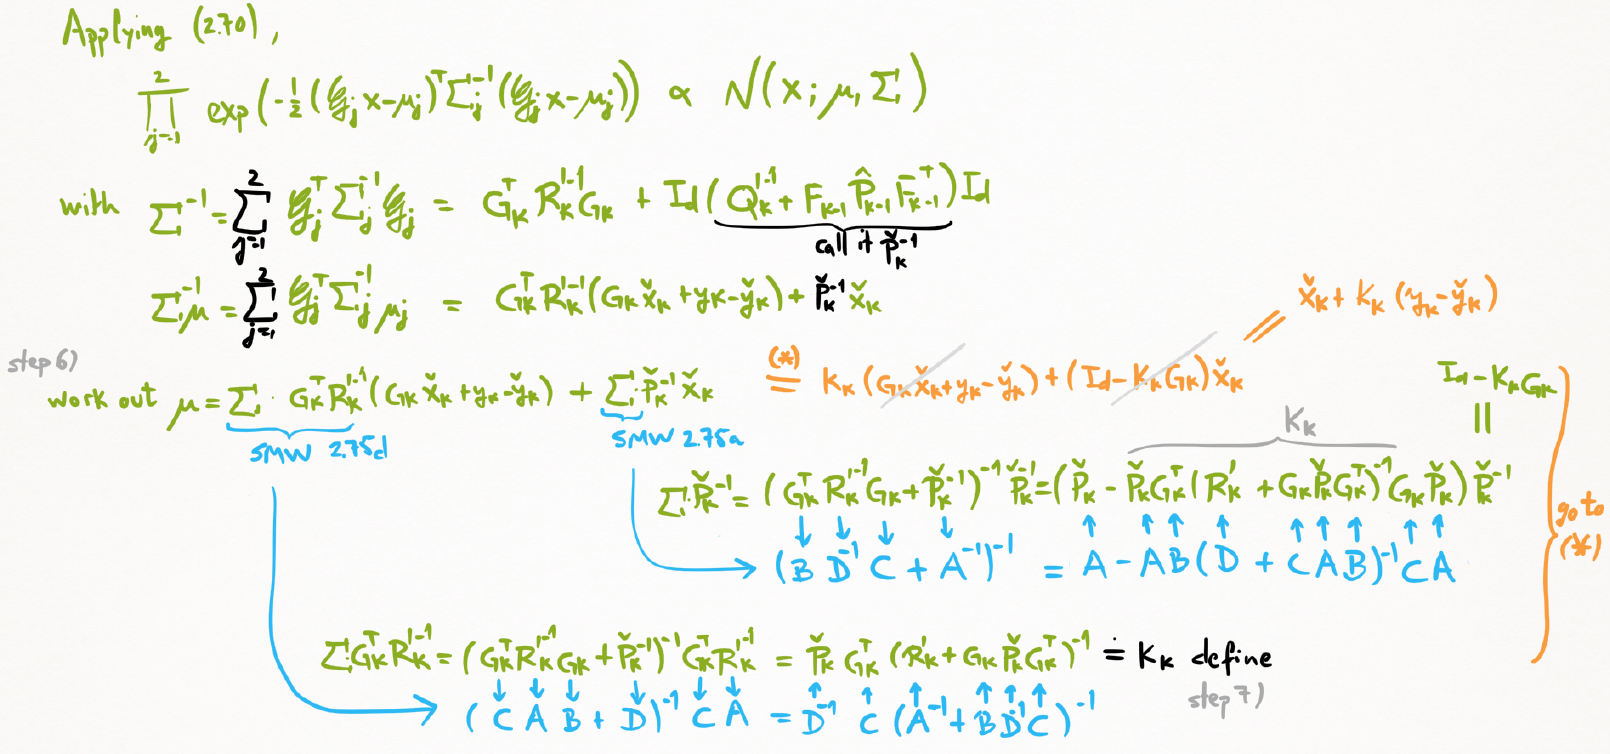 Applying (2.70),
∏_{j=1}^{2} exp(-½(𝒢_j x-μ_j)^T Σ_j^{-1}(𝒢_j x-μ_j)) ∝ N(x; μ, Σ)
with Σ^{-1} = ∑_{j=1}^{2} 𝒢_j^T Σ_j^{-1} 𝒢_j = G_K^T R_K'^{-1} G_K + Id(Q_K'^{-1} + F_{K-1} P̂_{K-1} F_{K-1}^{-T}) Id
call it P̌_K^{-1}
Σ^{-1}μ = ∑_{j=1}^{2} 𝒢_j^T Σ_j^{-1} μ_j = G_K^T R_K'^{-1}(G_K x̌_K + y_K - y̌_K) + P̌_K^{-1} x̌_K
x̌_K + K_K (y_K - y̌_K)
step 6)
work out μ = Σ · G_K^T R_K'^{-1}(G_K x̌_K + y_K - y̌_K) + Σ P̌_K^{-1} x̌_K (*) = K_K (G_K x̌_K + y_K - y̌_K) + (Id - K_K G_K) x̌_K
SMW 2.75d SMW 2.75a
Id - K_K G_K
K_K
Σ P̌_K^{-1} = (G_K^T R_K'^{-1} G_K + P̌_K^{-1})^{-1} P̌_K^{-1} = (P̌_K - P̌_K G_K^T (R_K' + G_K P̌_K G_K^T)^{-1} G_K P̌_K) P̌_K^{-1}
go to
(*)
(B D^{-1} C + A^{-1})^{-1} = A - AB(D + CAB)^{-1} CA
Σ G_K^T R_K'^{-1} = (G_K^T R_K'^{-1} G_K + P̌_K^{-1})^{-1} G_K^T R_K'^{-1} = P̌_K G_K^T (R_K' + G_K P̌_K G_K^T)^{-1} ≐ K_K define
step 7)
(C A B + D)^{-1} C A = D^{-1} C (A^{-1} + B D^{-1} C)^{-1}